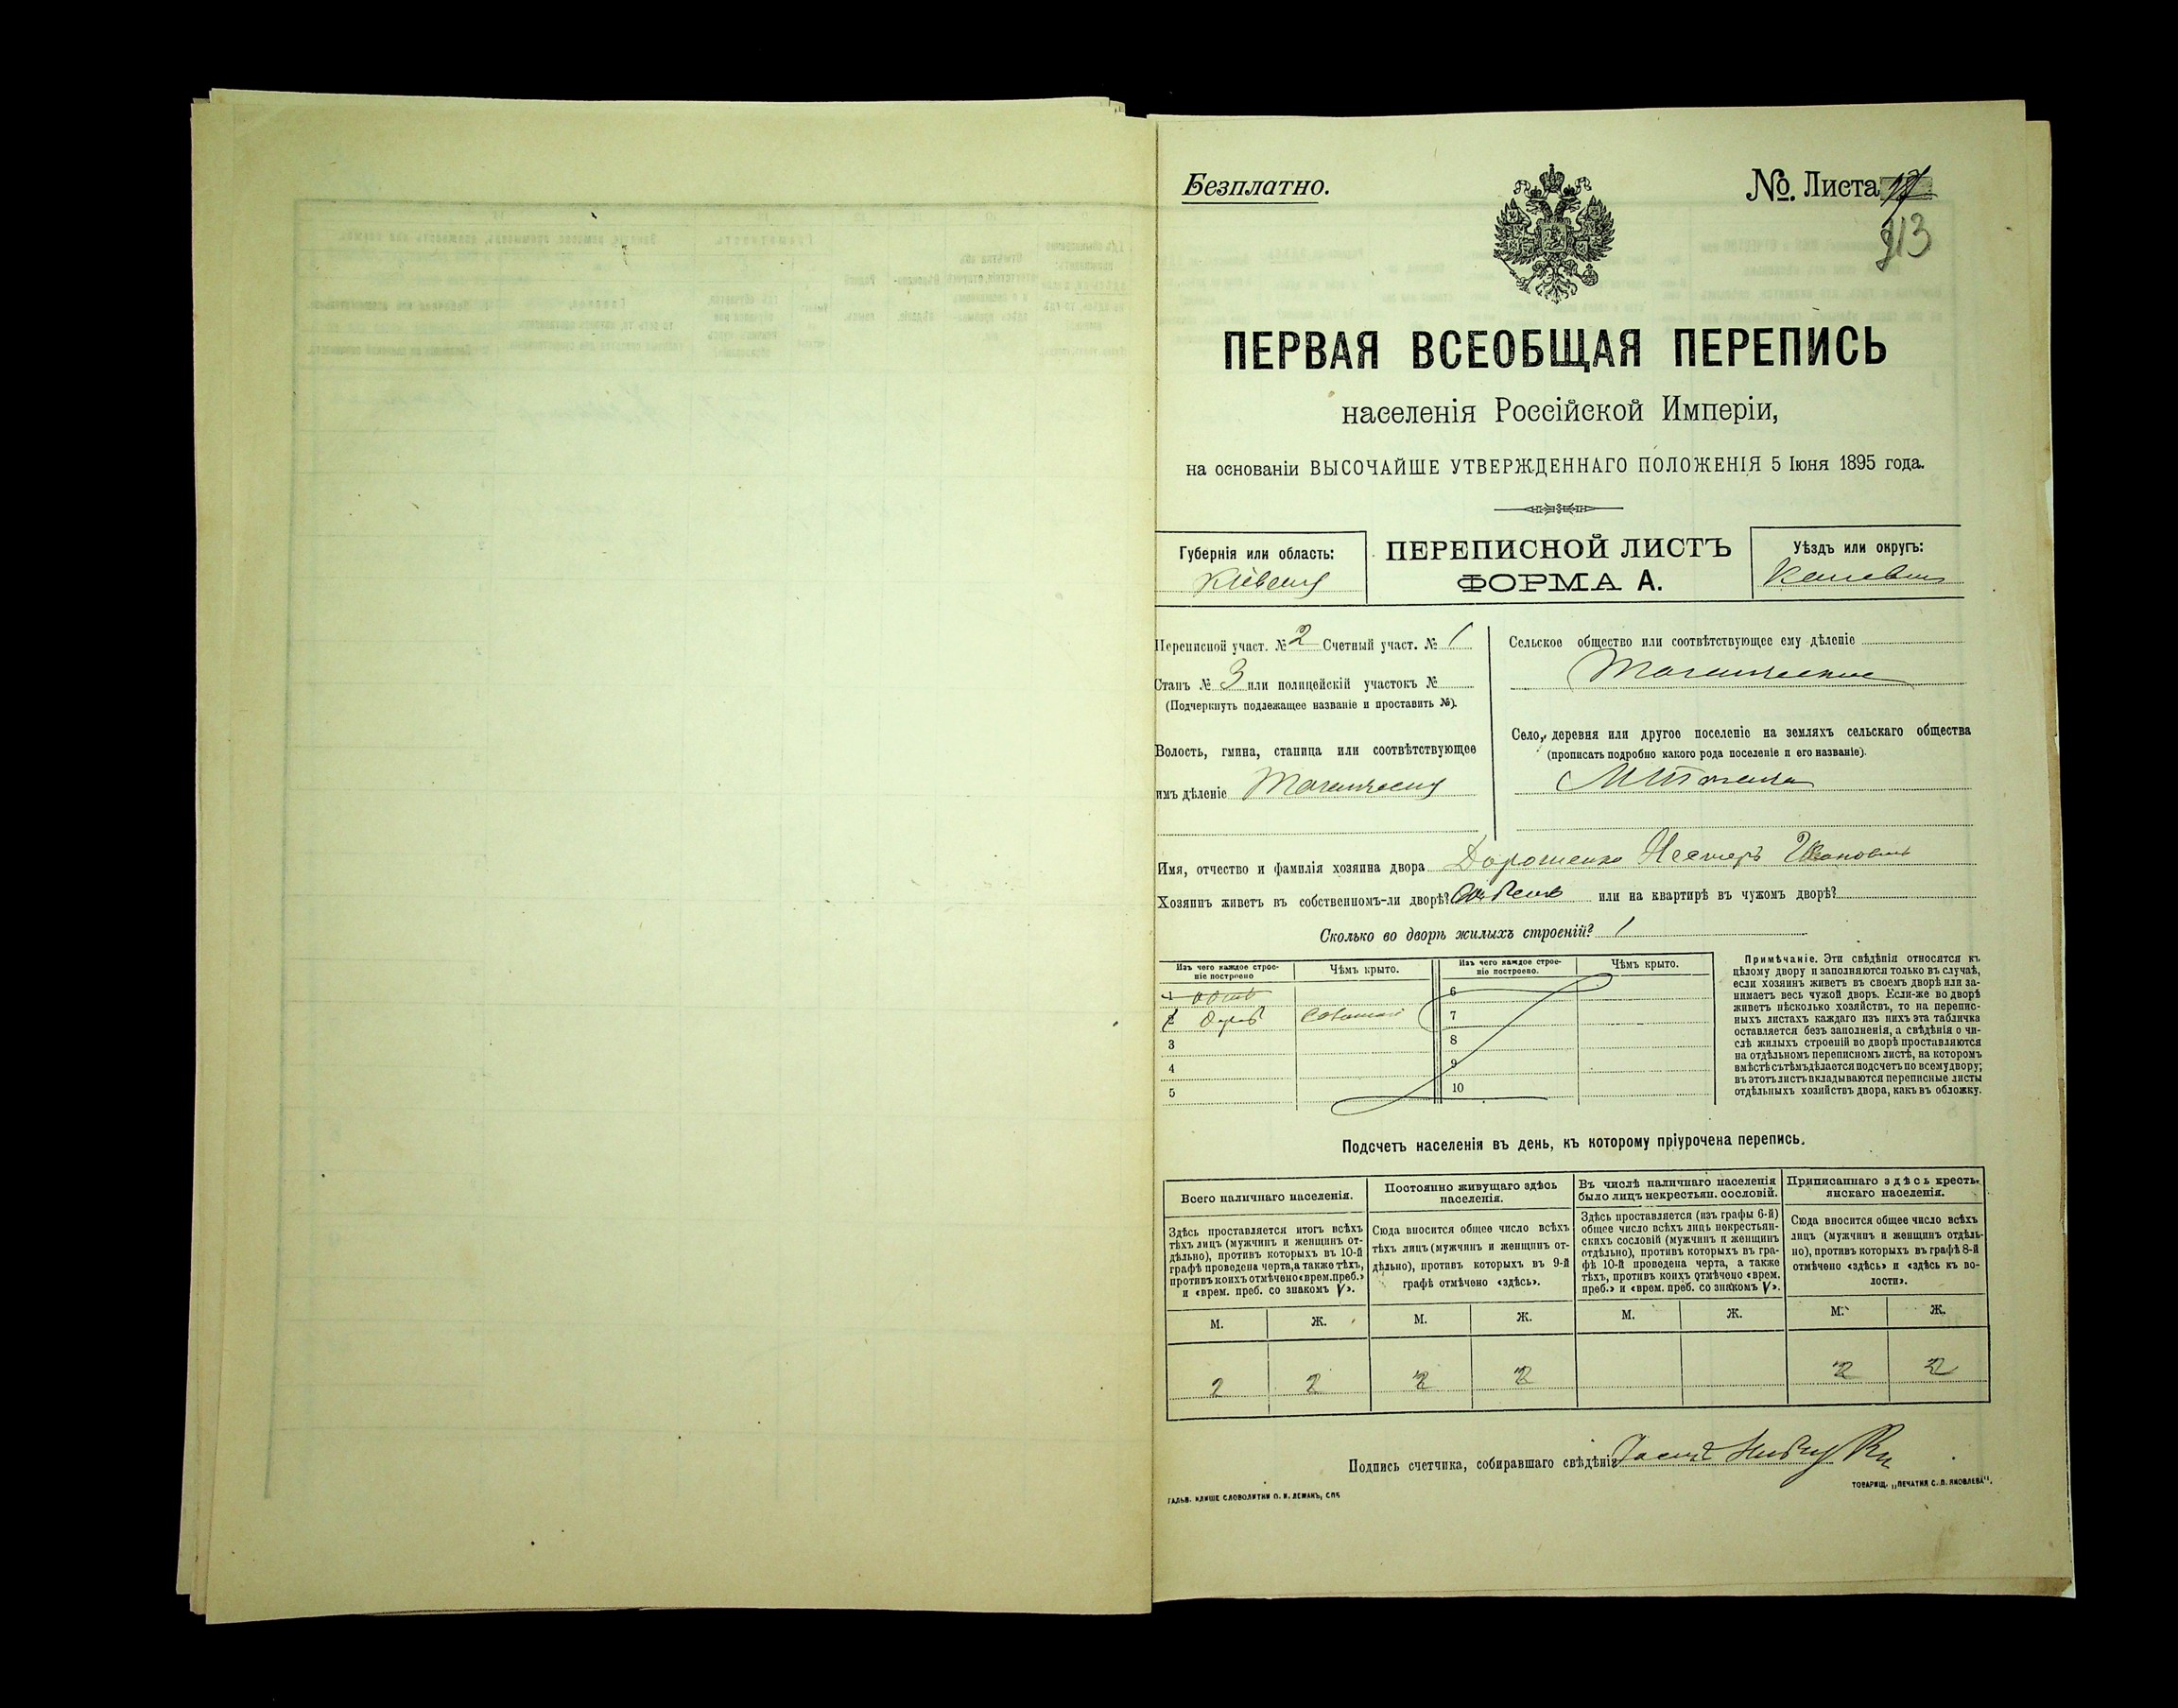 Безплатно.
№ Листа
113
ПЕРВАЯ ВСЕОБЩАЯ ПЕРЕПИСЬ
населенія Россійской Имперіи,
на основаніи ВЫСОЧАЙШЕ УТВЕРЖДЕННАГО ПОЛОЖЕНІЯ 5 Іюня 1895 года.
Губернія или область:
Кіевская
ПЕРЕПИСНОЙ ЛИСТЪ
ФОРМА А.
Уѣздъ или округъ:
Каневскій
Переписной участ. № 2 Счетный участ. № 1
Станъ № 3 или полицейскій участокъ №
(Подчеркнуть подлежащее названіе и проставить №).
Волость, гмина, станица или соотвѣтствующее
имъ дѣленіе
Сельское общество или соотвѣтствующее ему дѣленіе
Село, деревня или другое поселеніе на земляхъ сельскаго общества
(прописать подробно какого рода поселеніе и его названіе).
Имя, отчество и фамилія хозяина двора Дорошенко Нестеръ Ивановичъ
Хозяинъ живетъ въ собственномъ-ли дворѣ? или на квартирѣ въ чужомъ дворѣ?
Сколько во дворѣ жилыхъ строеній? 1
Изъ чего каждое строе-
ніе построено
Чѣмъ крыто.
Изъ чего каждое строе-
ніе построено.
Чѣмъ крыто.
1
6
дерев соломой
7
3
8
4
9
5
10
Примѣчаніе. Эти свѣдѣнія относятся къ
цѣлому двору и заполняются только въ случаѣ,
если хозяинъ живетъ въ своемъ дворѣ или за-
нимаетъ весь чужой дворъ. Если-же во дворѣ
живетъ нѣсколько хозяйствъ, то на перепис-
ныхъ листахъ каждаго изъ нихъ эта табличка
оставляется безъ заполненія, а свѣдѣнія о чи-
слѣ жилыхъ строеній во дворѣ проставляются
на отдѣльномъ переписномъ листѣ, на которомъ
вмѣстѣ съ тѣмъ дѣлается подсчетъ по всему двору;
въ этотъ листъ вкладываются переписные листы
отдѣльныхъ хозяйствъ двора, какъ въ обложку.
Подсчетъ населенія въ день, къ которому пріурочена перепись.
Всего наличнаго населенія.
Здѣсь проставляется итогъ всѣхъ
тѣхъ лицъ (мужчинъ и женщинъ от-
дѣльно), противъ которыхъ въ 10-й
графѣ проведена черта, а также тѣхъ,
противъ коихъ отмѣчено «врем. преб.»
и «врем. преб. со знакомъ V».
Постоянно живущаго здѣсь
населенія.
Сюда вносится общее число всѣхъ
тѣхъ лицъ (мужчинъ и женщинъ от-
дѣльно), противъ которыхъ въ 9-й
графѣ отмѣчено «здѣсь».
Въ числѣ наличнаго населенія
было лицъ некрестьян. сословій.
Здѣсь проставляется (изъ графы 6-й)
общее число всѣхъ лицъ некрестьян-
скихъ сословій (мужчинъ и женщинъ
отдѣльно), противъ которыхъ въ гра-
фѣ 10-й проведена черта, а также
тѣхъ, противъ коихъ отмѣчено «врем.
преб.» и «врем. преб. со знакомъ V».
Приписаннаго здѣсь кресть-
янскаго населенія.
Сюда вносится общее число всѣхъ
лицъ (мужчинъ и женщинъ отдѣль-
но), противъ которыхъ въ графѣ 8-й
отмѣчено «здѣсь» и «здѣсь къ во-
лости».
М. Ж. М. Ж. М. Ж. М. Ж.
2 2 2 2 2 2
Подпись счетчика, собиравшаго свѣдѣнія
ГАЛЬВ. КЛИШЕ СЛОВОЛИТНИ О. И. ЛЕМАНЪ, СПБ.
ТОВАРИЩ. „ПЕЧАТНЯ С. П. ЯКОВЛЕВА".